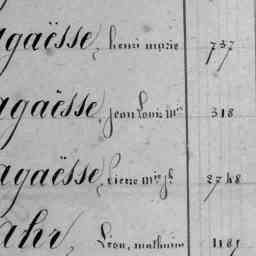 agaësse, henri marie 737
agaësse, jean Louis Mie 318
agaësse, pierre Mie jh 2748
ahr, Léon, mathurin 1185